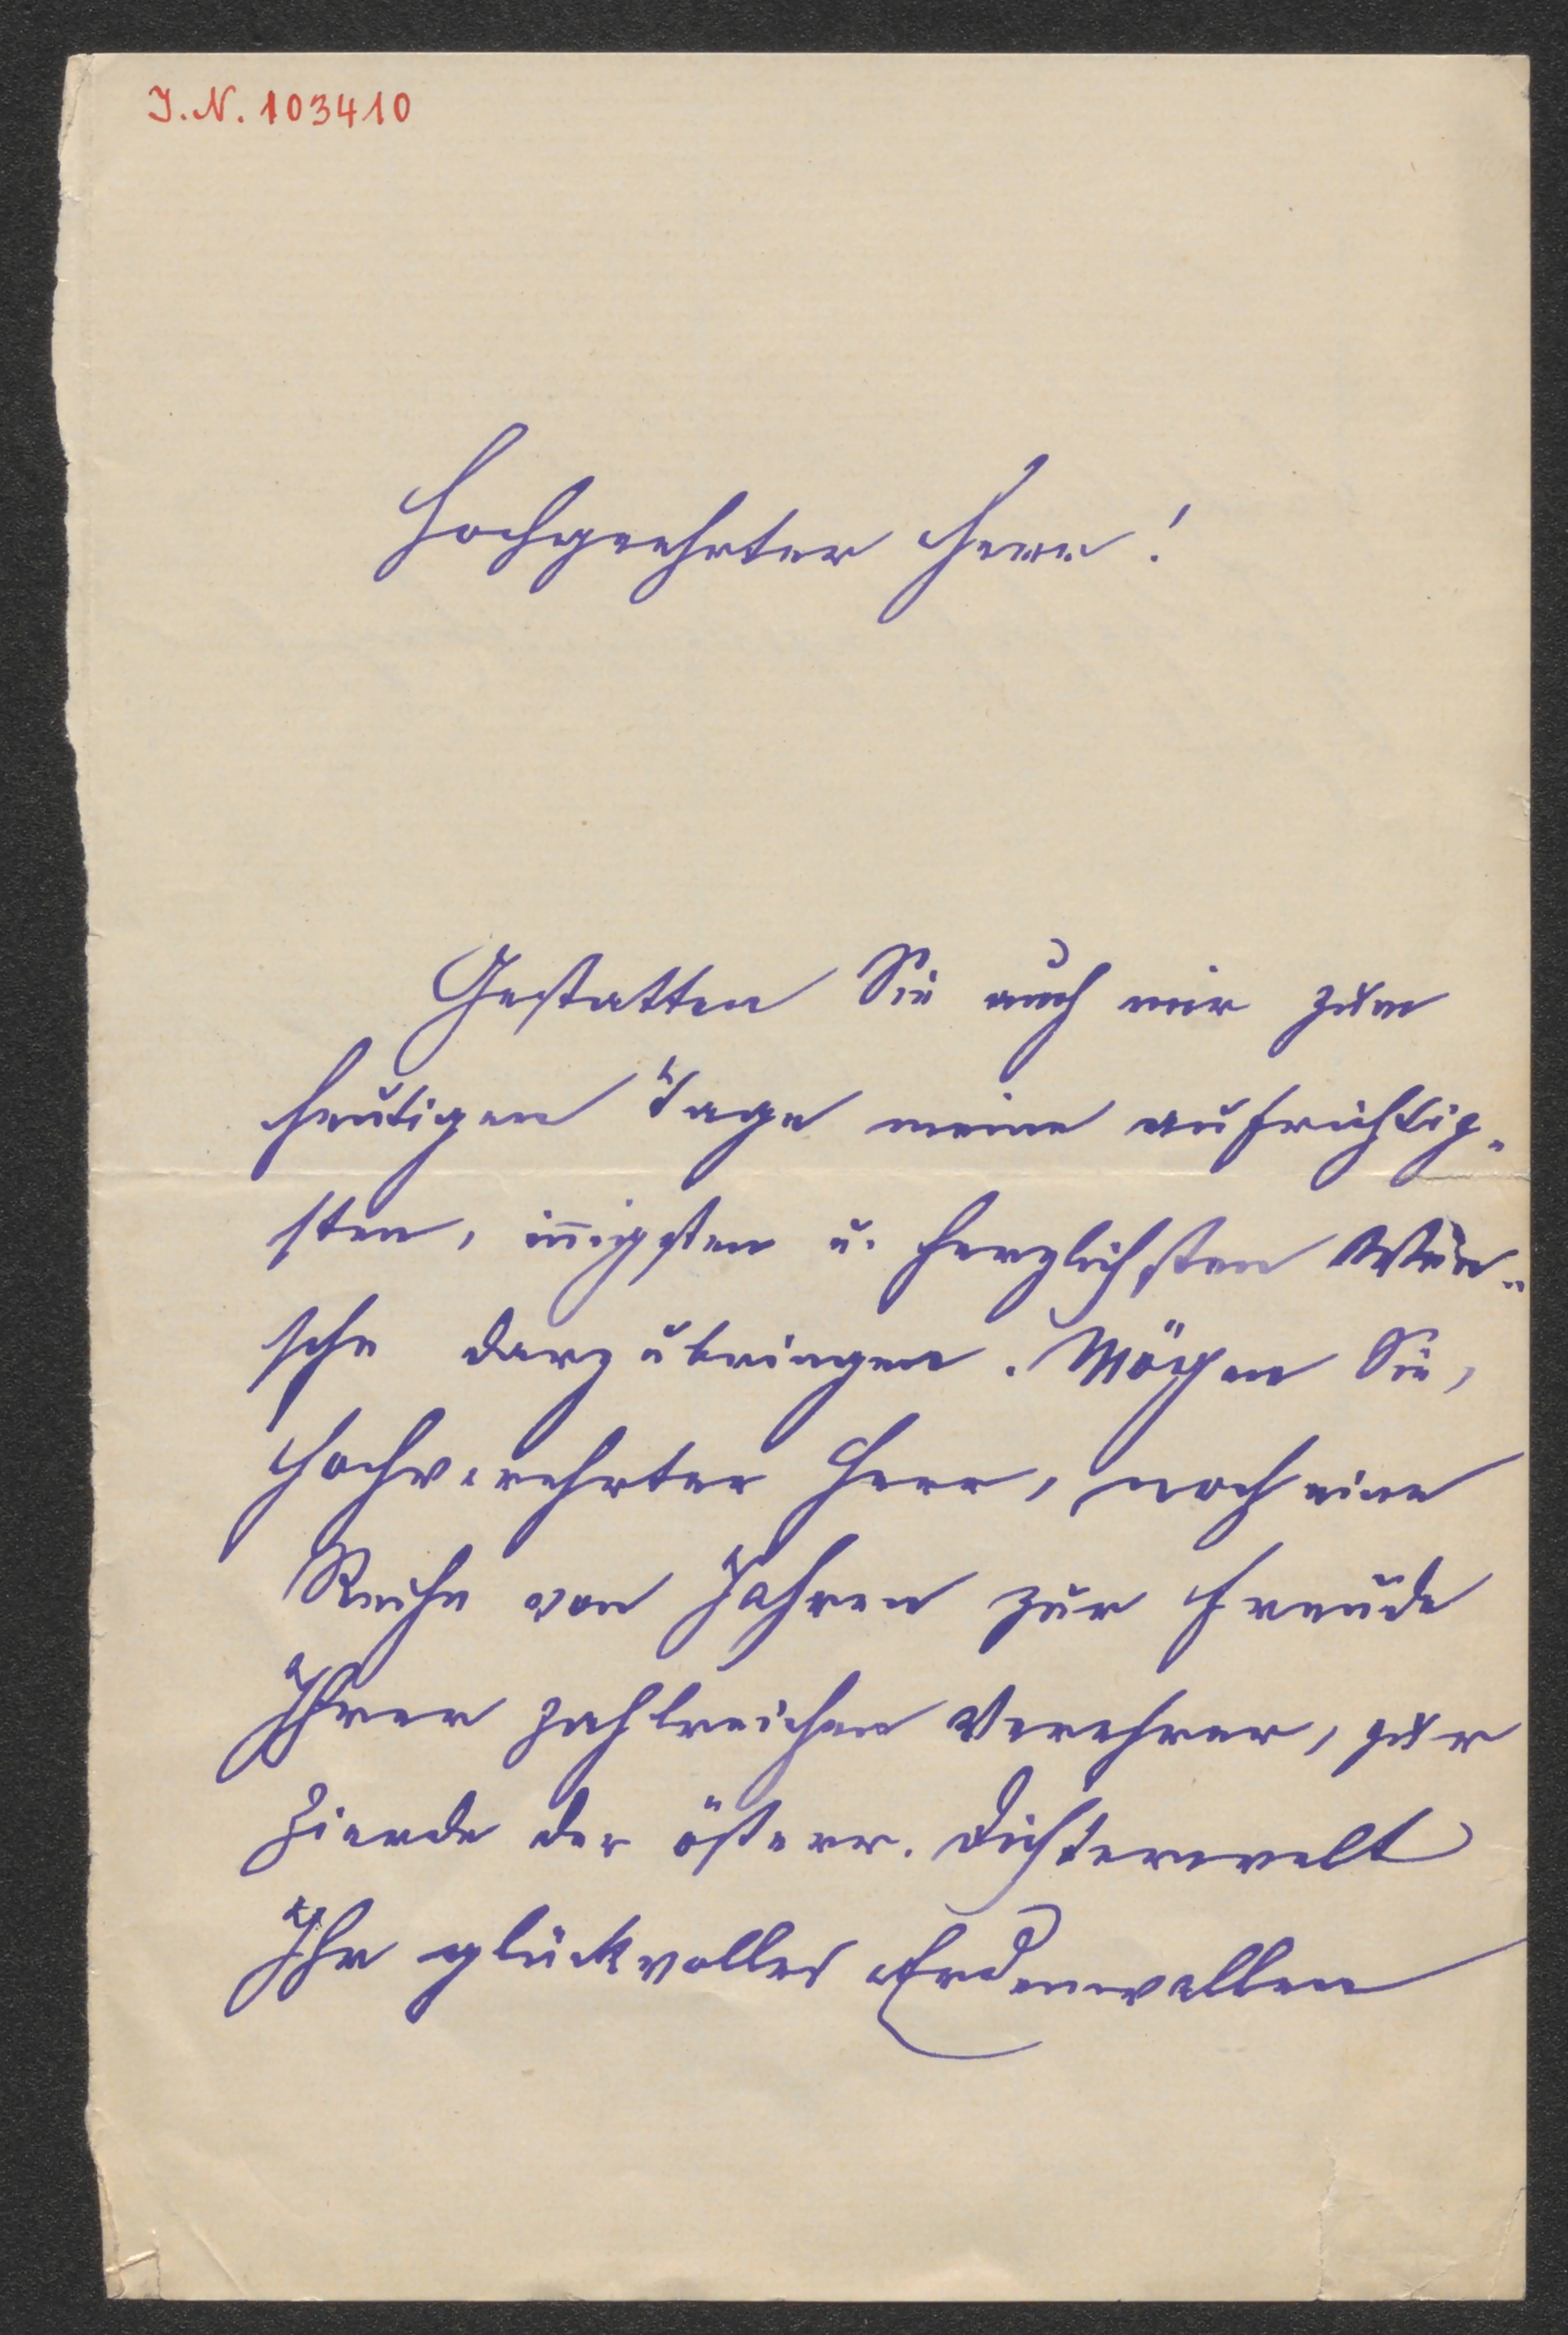 I.N. 103410
Hochgeehrter Herr!
Gestatten Sie auch mir zum
heutigen Tage meine aufrichtig-
sten, iñigsten u. herzlichsten Wün-
sche darzubringen. Mögen Sie,
hochverehrter Herr, noch eine
Reihe von Jahren zur Freude
Ihrer zahlreichen Verehrer, zur
Zierde der österr. Dichterwelt
Ihr glückvolles Erdenwallen